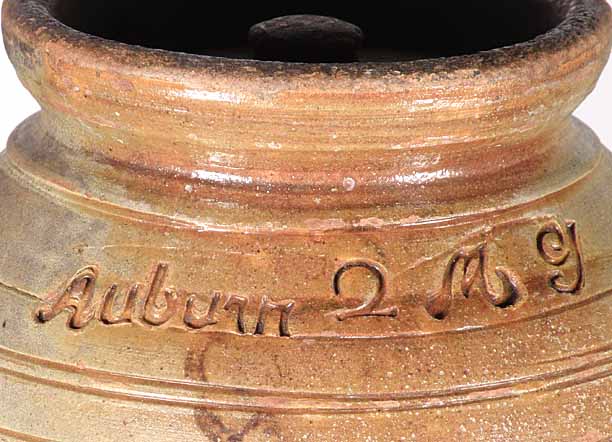 Auburn 2 M g